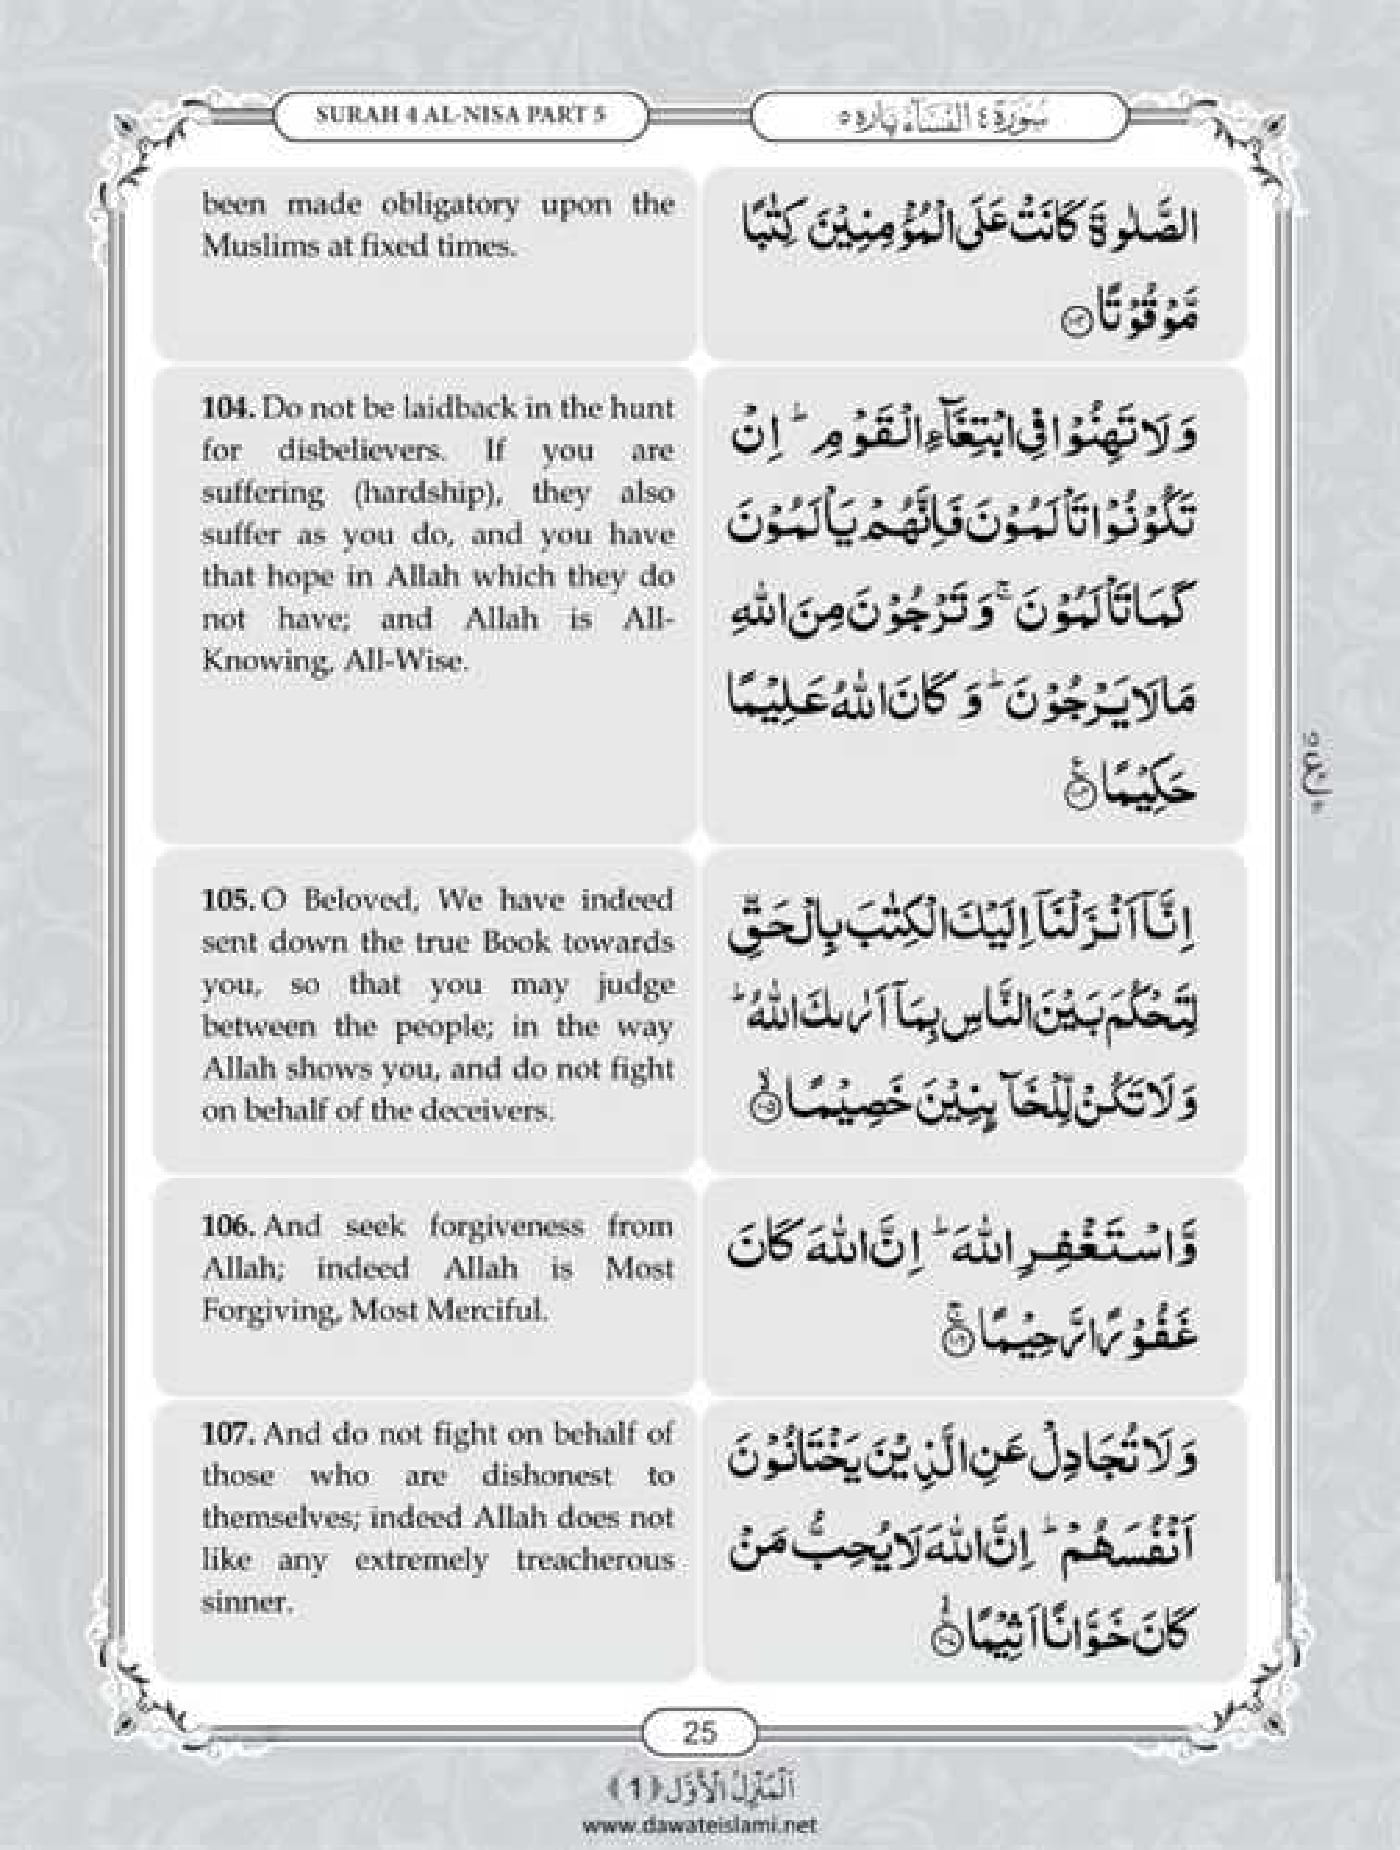 SURAH 4 AL-NISA PART 5
سُوْرَة ٤ النِّسَآء پَاره ٥
been made obligatory upon the
Muslims at fixed times.
الصَّلٰوةَ كَانَتْ عَلَى الْمُؤْمِنِيْنَ كِتٰبًا
مَّوْقُوْتًا ﴿۱۰۳﴾
104. Do not be laidback in the hunt
for disbelievers. If you are
suffering (hardship), they also
suffer as you do, and you have
that hope in Allah which they do
not have; and Allah is All-
Knowing, All-Wise.
وَلَا تَهِنُوْا فِي ابْتِغَآءِ الْقَوْمِ ؕ اِنْ
تَكُوْنُوْا تَاْلَمُوْنَ فَاِنَّهُمْ يَاْلَمُوْنَ
كَمَا تَاْلَمُوْنَ ۚ وَتَرْجُوْنَ مِنَ اللّٰهِ
مَا لَا يَرْجُوْنَ ؕ وَكَانَ اللّٰهُ عَلِيْمًا
حَكِيْمًا ﴿۱۰۴﴾
105. O Beloved, We have indeed
sent down the true Book towards
you, so that you may judge
between the people; in the way
Allah shows you, and do not fight
on behalf of the deceivers.
اِنَّاۤ اَنْزَلْنَاۤ اِلَيْكَ الْكِتٰبَ بِالْحَقِّ
لِتَحْكُمَ بَيْنَ النَّاسِ بِمَاۤ اَرٰىكَ اللّٰهُ ؕ
وَلَا تَكُنْ لِّلْخَآئِنِيْنَ خَصِيْمًا ﴿۱۰۵﴾
106. And seek forgiveness from
Allah; indeed Allah is Most
Forgiving, Most Merciful.
وَّاسْتَغْفِرِ اللّٰهَ ؕ اِنَّ اللّٰهَ كَانَ
غَفُوْرًا رَّحِيْمًا ﴿۱۰۶﴾
107. And do not fight on behalf of
those who are dishonest to
themselves; indeed Allah does not
like any extremely treacherous
sinner.
وَلَا تُجَادِلْ عَنِ الَّذِيْنَ يَخْتَانُوْنَ
اَنْفُسَهُمْ ؕ اِنَّ اللّٰهَ لَا يُحِبُّ مَنْ
كَانَ خَوَّانًا اَثِيْمًا ﴿۱۰۷﴾
25
اَلْمَنْزِلُ الْاَوَّل ﴿1﴾
www.dawateislami.net